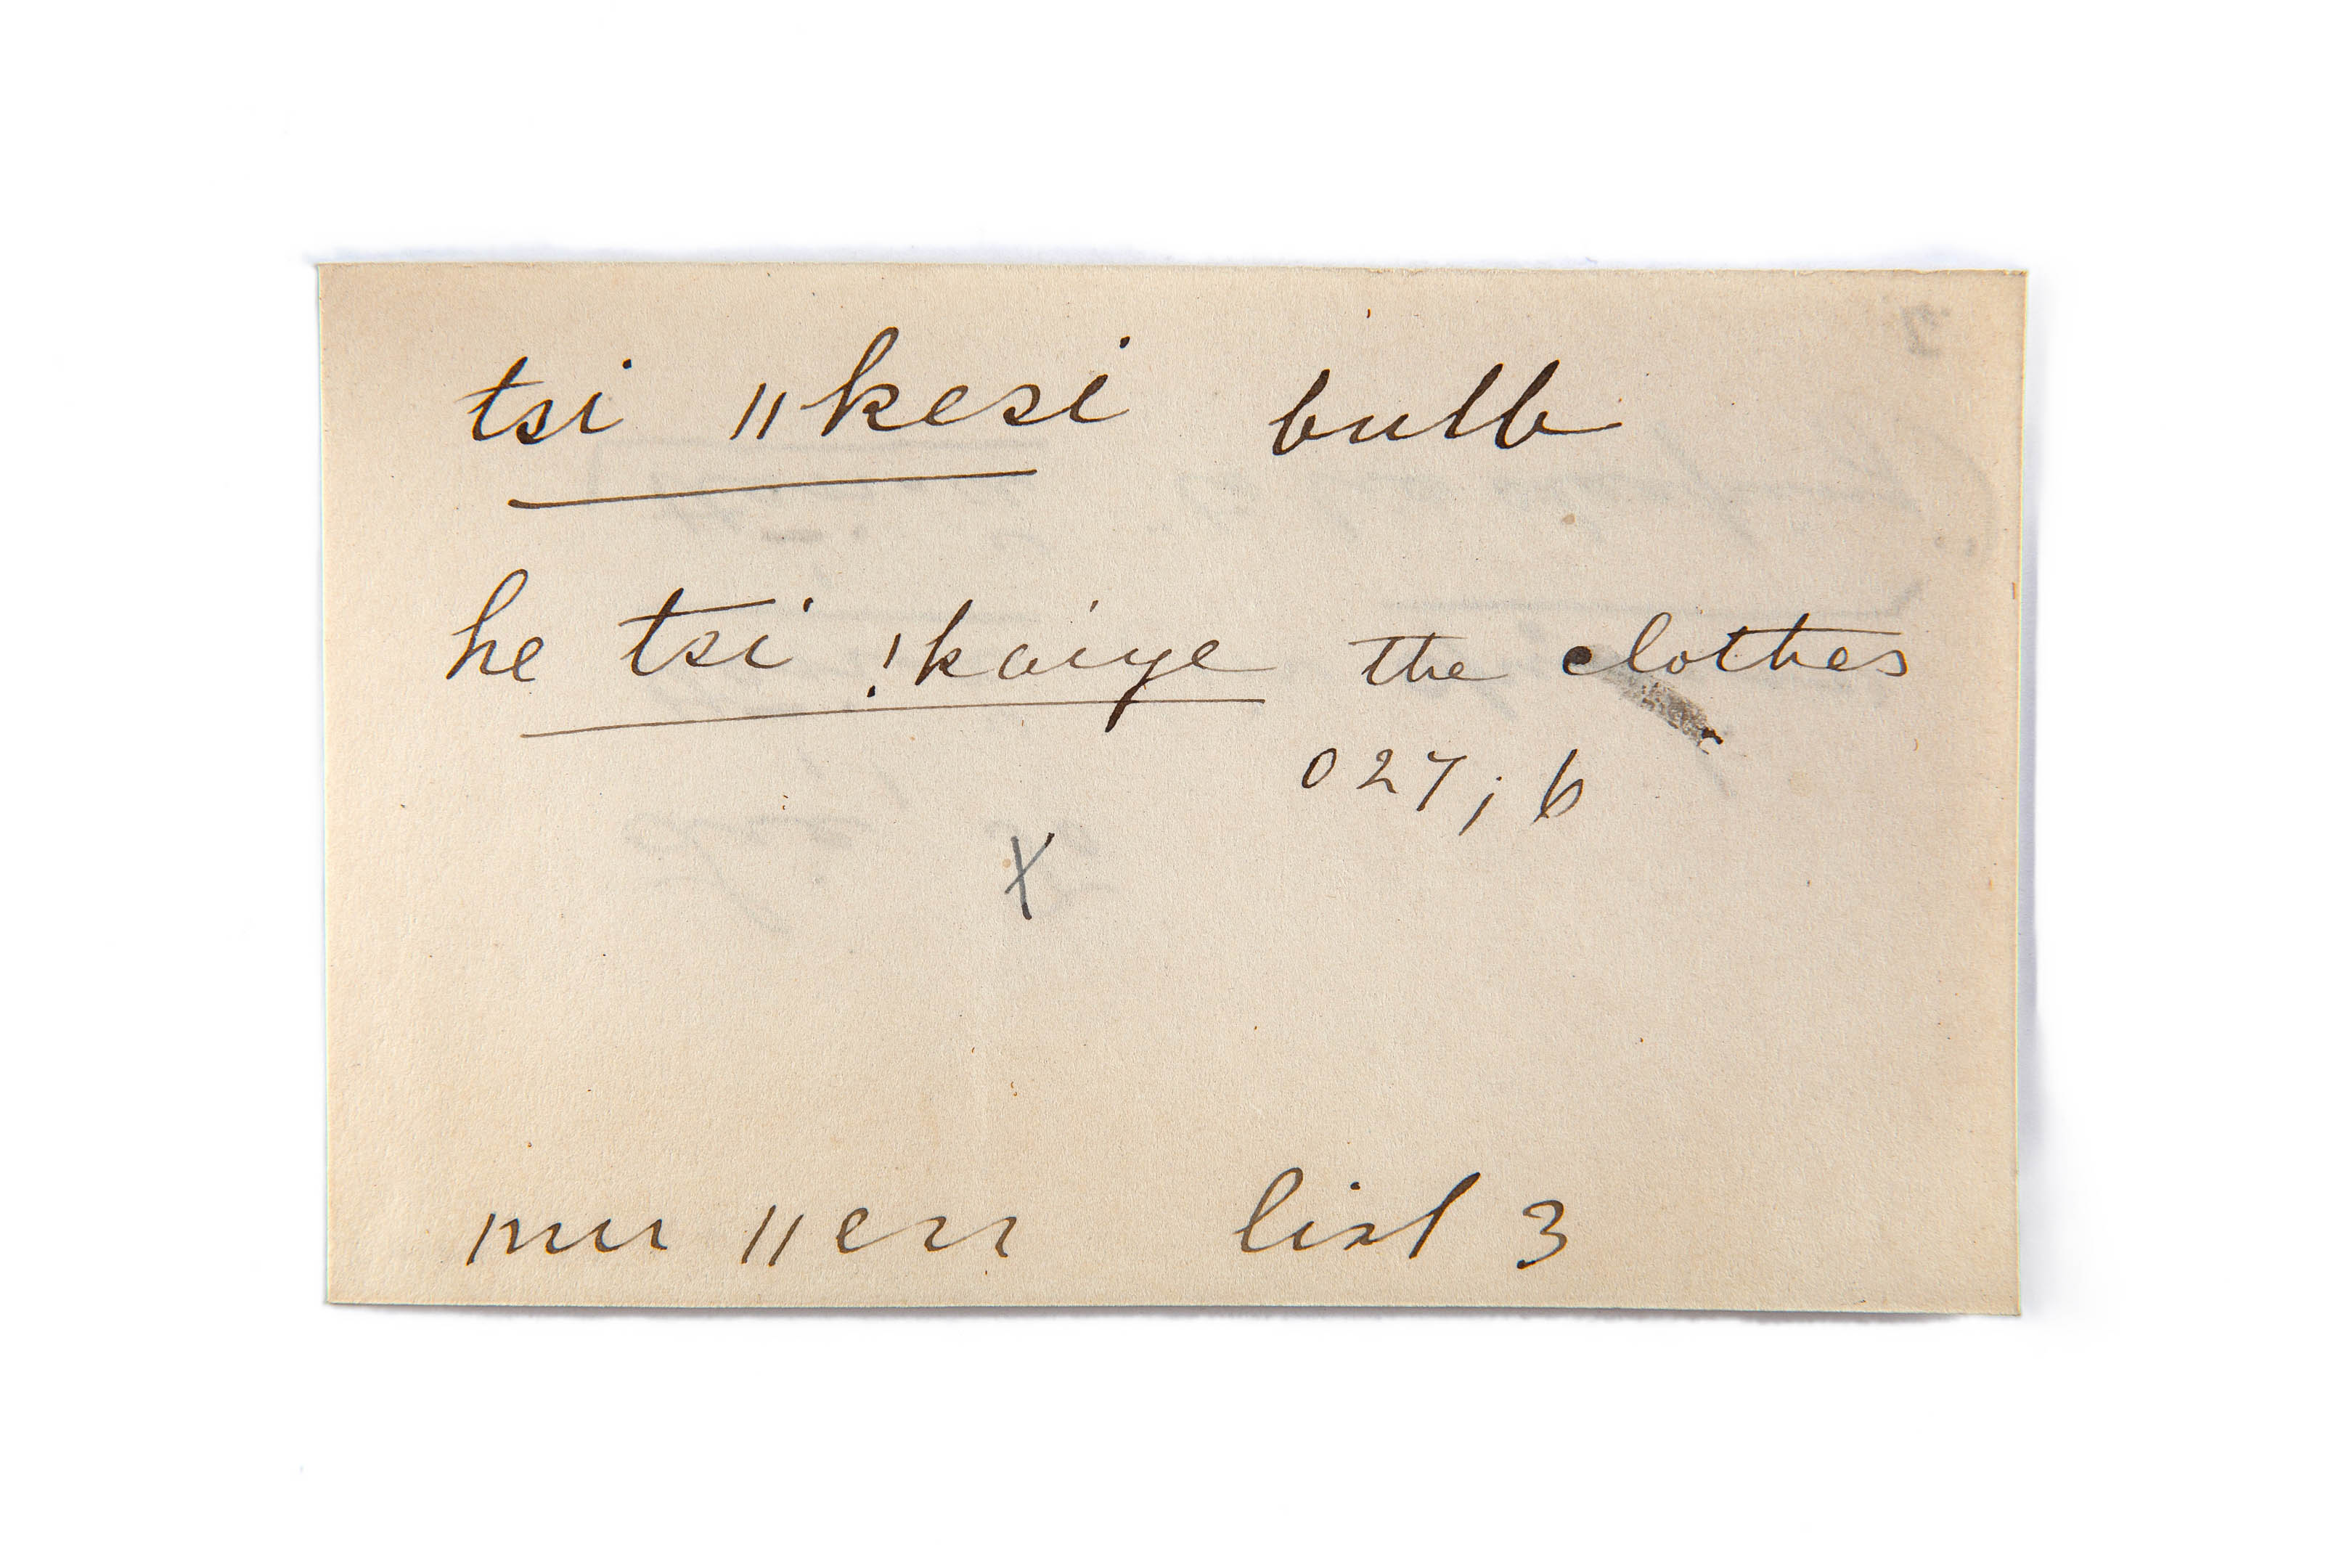 tsi ǁkesi bulb
he tsi !kaiye the clothes
027; b
X
ǀnu ǁen list 3